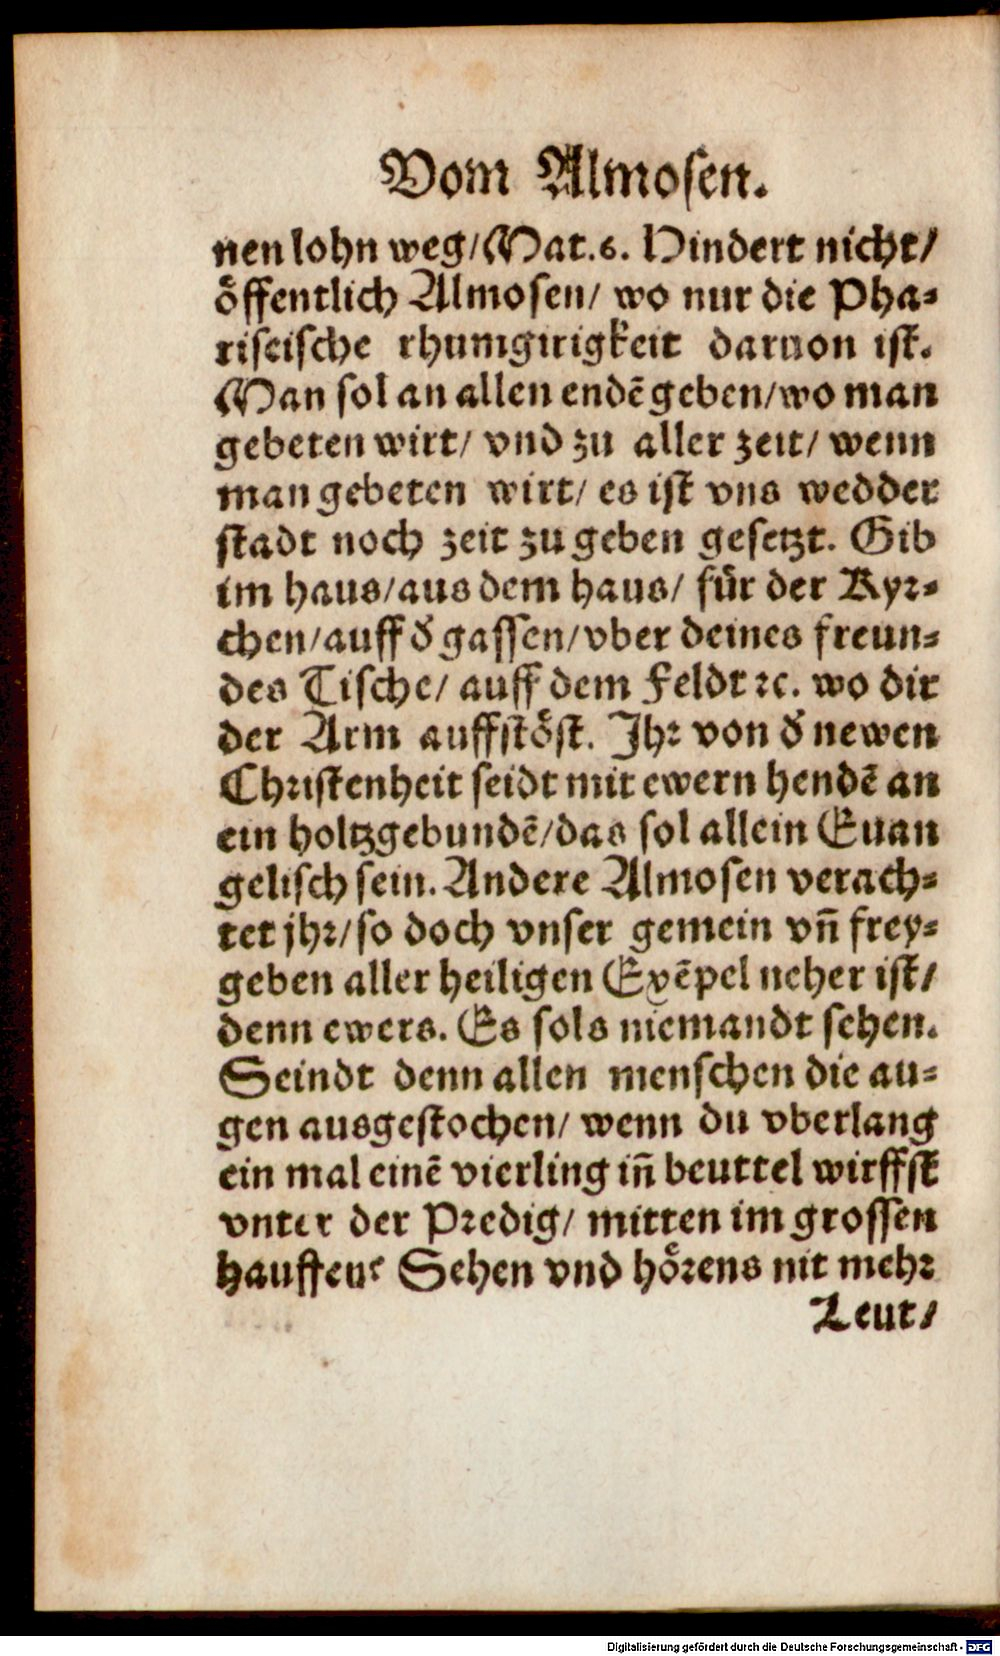 Vom Almosen.
nen lohn weg/ Mat.6. Hindert nicht/
oͤffentlich Almosen/ wo nur die Pha⸗
riseische rhumgirigkeit daruon ist.
Man sol an allen endẽ geben/ wo man
gebeten wirt/ vnd zu aller zeit/ wenn
man gebeten wirt/ es ist vns wedder
stadt noch zeit zu geben gesetzt. Gib
im haus/ aus dem haus/ fuͤr der Kyr⸗
chen/ auff ď gassen/ vber deines freun⸗
des Tische/ auff dem Feldt ꝛc. wo dir
der Arm auffstoͤst. Jhr von ď newen
Christenheit seidt mit ewern hendẽ an
ein holtzgebundẽ/ das sol allein Euan
gelisch sein. Andere Almosen verach⸗
tet jhr/ so doch vnser gemein vñ frey⸗
geben aller heiligen Exẽpel neher ist/
denn ewers. Es sols niemandt sehen.
Seindt denn allen menschen die au⸗
gen ausgestochen/ wenn du vberlang
ein mal einẽ vierling iñ beuttel wirffst
vnter der Predig/ mitten im grossen
hauffen? Sehen vnd hoͤrens nit mehr
Leut/
Digitalisierung gefördert durch die Deutsche Forschungsgemeinschaft - DFG